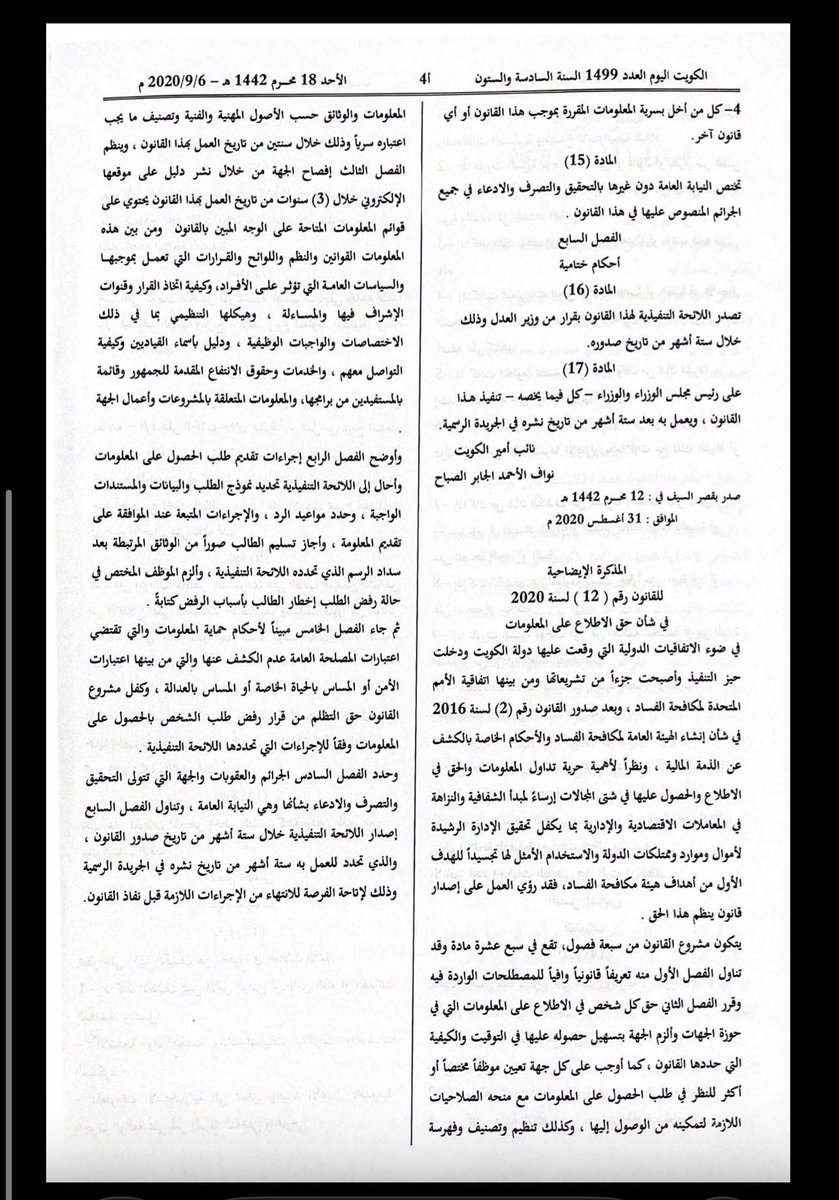 الكويت اليوم العدد 1499 السنة السادسة والستون
أ4
الأحد 18 محرم 1442 هـ - 2020/9/6 م
4- كل من أخل بسرية المعلومات المقررة بموجب هذا القانون أو أي
قانون آخر.
المادة (15)
تختص النيابة العامة دون غيرها بالتحقيق والتصرف والادعاء في جميع
الجرائم المنصوص عليها في هذا القانون .
الفصل السابع
أحكام ختامية
المادة (16)
تصدر اللائحة التنفيذية لهذا القانون بقرار من وزير العدل وذلك
خلال ستة أشهر من تاريخ صدوره.
المادة (17)
على رئيس مجلس الوزراء والوزراء - كل فيما يخصه - تنفيذ هذا
القانون ، ويعمل به بعد ستة أشهر من تاريخ نشره في الجريدة الرسمية.
نائب أمير الكويت
نواف الأحمد الجابر الصباح
صدر بقصر السيف في : 12 محرم 1442 هـ
الموافق : 31 أغسطس 2020 م
المذكرة الإيضاحية
للقانون رقم ( 12 ) لسنة 2020
في شأن حق الاطلاع على المعلومات
في ضوء الاتفاقيات الدولية التي وقعت عليها دولة الكويت ودخلت
حيز التنفيذ وأصبحت جزءاً من تشريعاتها ومن بينها اتفاقية الأمم
المتحدة لمكافحة الفساد ، وبعد صدور القانون رقم (2) لسنة 2016
في شأن إنشاء الهيئة العامة لمكافحة الفساد والأحكام الخاصة بالكشف
عن الذمة المالية ، ونظراً لأهمية حرية تداول المعلومات والحق في
الاطلاع والحصول عليها في شتى المجالات إرساءً لمبدأ الشفافية والنزاهة
في المعاملات الاقتصادية والإدارية بما يكفل تحقيق الإدارة الرشيدة
لأموال وموارد وممتلكات الدولة والاستخدام الأمثل لها تجسيداً للهدف
الأول من أهداف هيئة مكافحة الفساد، فقد رؤي العمل على إصدار
قانون ينظم هذا الحق .
يتكون مشروع القانون من سبعة فصول، تقع في سبع عشرة مادة وقد
تناول الفصل الأول منه تعريفاً قانونياً وافياً للمصطلحات الواردة فيه
وقرر الفصل الثاني حق كل شخص في الاطلاع على المعلومات التي في
حوزة الجهات وألزم الجهة بتسهيل حصوله عليها في التوقيت والكيفية
التي حددها القانون ، كما أوجب على كل جهة تعيين موظفاً مختصاً أو
أكثر للنظر في طلب الحصول على المعلومات مع منحه الصلاحيات
اللازمة لتمكينه من الوصول إليها ، وكذلك تنظيم وتصنيف وفهرسة
المعلومات والوثائق حسب الأصول المهنية والفنية وتصنيف ما يجب
اعتباره سرياً وذلك خلال سنتين من تاريخ العمل بهذا القانون ، وينظم
الفصل الثالث إفصاح الجهة من خلال نشر دليل على موقعها
الإلكتروني خلال (3) سنوات من تاريخ العمل بهذا القانون يحتوي على
قوائم المعلومات المتاحة على الوجه المبين بالقانون ومن بين هذه
المعلومات القوانين والنظم واللوائح والقرارات التي تعمل بموجبها
والسياسات العامة التي تؤثر على الأفراد، وكيفية اتخاذ القرار وقنوات
الإشراف فيها والمساءلة ، وهيكلها التنظيمي بما في ذلك
الاختصاصات والواجبات الوظيفية ، ودليل بأسماء القياديين وكيفية
التواصل معهم ، والخدمات وحقوق الانتفاع المقدمة للجمهور وقائمة
بالمستفيدين من برامجها، والمعلومات المتعلقة بالمشروعات وأعمال الجهة
.
وأوضح الفصل الرابع إجراءات تقديم طلب الحصول على المعلومات
وأحال إلى اللائحة التنفيذية تحديد نموذج الطلب والبيانات والمستندات
الواجبة ، وحدد مواعيد الرد ، والإجراءات المتبعة عند الموافقة على
تقديم المعلومة ، وأجاز تسليم الطالب صوراً من الوثائق المرتبطة بعد
سداد الرسم الذي تحدده اللائحة التنفيذية ، وألزم الموظف المختص في
حالة رفض الطلب إخطار الطالب بأسباب الرفض كتابةً .
ثم جاء الفصل الخامس مبيناً لأحكام حماية المعلومات والتي تقتضي
اعتبارات المصلحة العامة عدم الكشف عنها والتي من بينها اعتبارات
الأمن أو المساس بالحياة الخاصة أو المساس بالعدالة ، وكفل مشروع
القانون حق التظلم من قرار رفض طلب الشخص بالحصول على
المعلومات وفقاً للإجراءات التي تحددها اللائحة التنفيذية .
وحدد الفصل السادس الجرائم والعقوبات والجهة التي تتولى التحقيق
والتصرف والادعاء بشأنها وهي النيابة العامة ، وتناول الفصل السابع
إصدار اللائحة التنفيذية خلال ستة أشهر من تاريخ صدور القانون ،
والذي تحدد للعمل به ستة أشهر من تاريخ نشره في الجريدة الرسمية
وذلك لإتاحة الفرصة للانتهاء من الإجراءات اللازمة قبل نفاذ القانون.